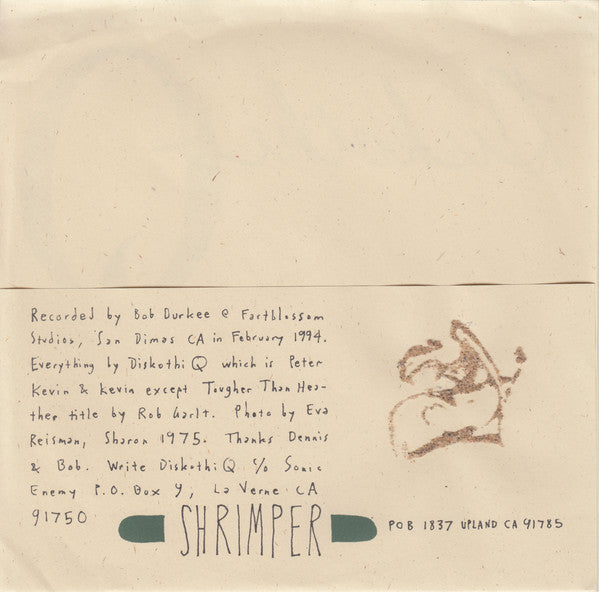 Recorded by Bob Durkee @ Fartblossom
Studios, San Dimas CA in February 1994.
Everything by Diskothi Q which is Peter
Kevin & Kevin except Tougher Than Hea-
ther title by Rob Garlt. Photo by Eva
Reisman, Sharon 1975. Thanks Dennis
& Bob. Write Diskothi Q c/o Sonic
Enemy P.O. Box 4, La Verne CA
91750
SHRIMPER
POB 1837 UPLAND CA 91785